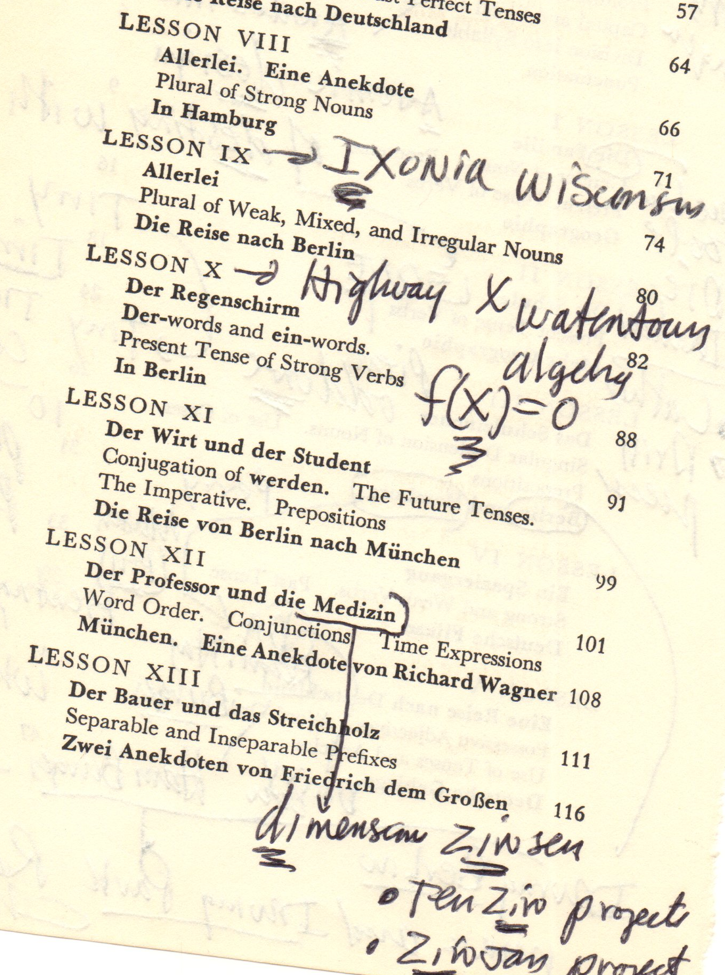 Reise nach Deutschland
Perfect Tenses 57
LESSON VIII 64
Allerlei. Eine Anekdote
Plural of Strong Nouns
In Hamburg 66
LESSON IX → IXONIA WISCONSIN 71
Allerlei
Plural of Weak, Mixed, and Irregular Nouns 74
Die Reise nach Berlin
LESSON X → Highway X watertown 80
Der Regenschirm
Der-words and ein-words. 82
Present Tense of Strong Verbs
In Berlin
f(X)=0
LESSON XI 88
Der Wirt und der Student
Conjugation of werden. The Future Tenses. 91
The Imperative. Prepositions
Die Reise von Berlin nach München
LESSON XII 99
Der Professor und die Medizin
Word Order. Conjunctions Time Expressions 101
München. Eine Anekdote von Richard Wagner 108
LESSON XIII
Der Bauer und das Streichholz 111
Separable and Inseparable Prefixes
Zwei Anekdoten von Friedrich dem Großen 116
ZINSEN
• TEN ZIN project
• project